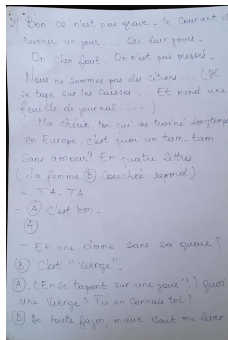 Bon ce n'est pas grave - le courant va
revenir un jour.... Ses deux jours -
On s'en fout. On n'est pas pressés -
Nous ne sommes pas des citrons... (Il
se tape sur les cuisses... Et prend une
feuille de journal....)
Ma chérie toi qui as traîné longtemps
en Europe, c'est quoi un tam-tam
sans amour? En quatre lettres
(La femme (B) couchée répond)
- TA-TA
- (A) C'est bon.
(A)
- Et une dame sans sa queue?
(B) C'est "vierge".
(A) (En se tapant sur une joue!) Quoi
une vierge? Tu en connais toi?
(B) De toute façon, mieux vaut me laver